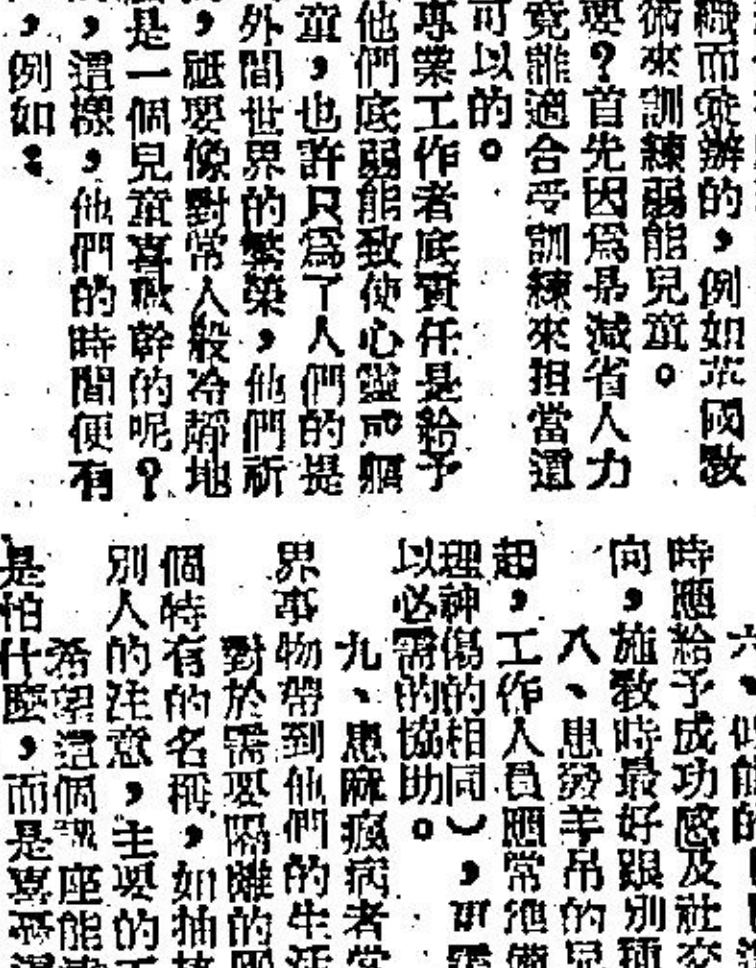 織而兼辦的，例如英國敎
術來訓練弱能兒童。
要？首先因爲是減省人力
竟誰適合受訓練來担當這
可以的。
專業工作者底責任是給予
他們底弱能致使心靈
童，也許只爲了人們的提
外間世界的繁榮，他們祈
，祗要像對常人般冷靜地
是一個兒童喜歡幹的呢？
，這樣，他們的時間便有
，例如：
六、低能的
時應給予成功感及社交
向，施敎時最好跟別種
八、患發羊吊的兒
起，工作人員應常準備
理神傷的相同），更需
以必需的協助。
九、患麻瘋病者當
界事物帶到他們的生活
對於需要隔離的
個特有的名稱，如抽
別人的注意，主要的
希望這個講座能
是怕什麼，而是喜